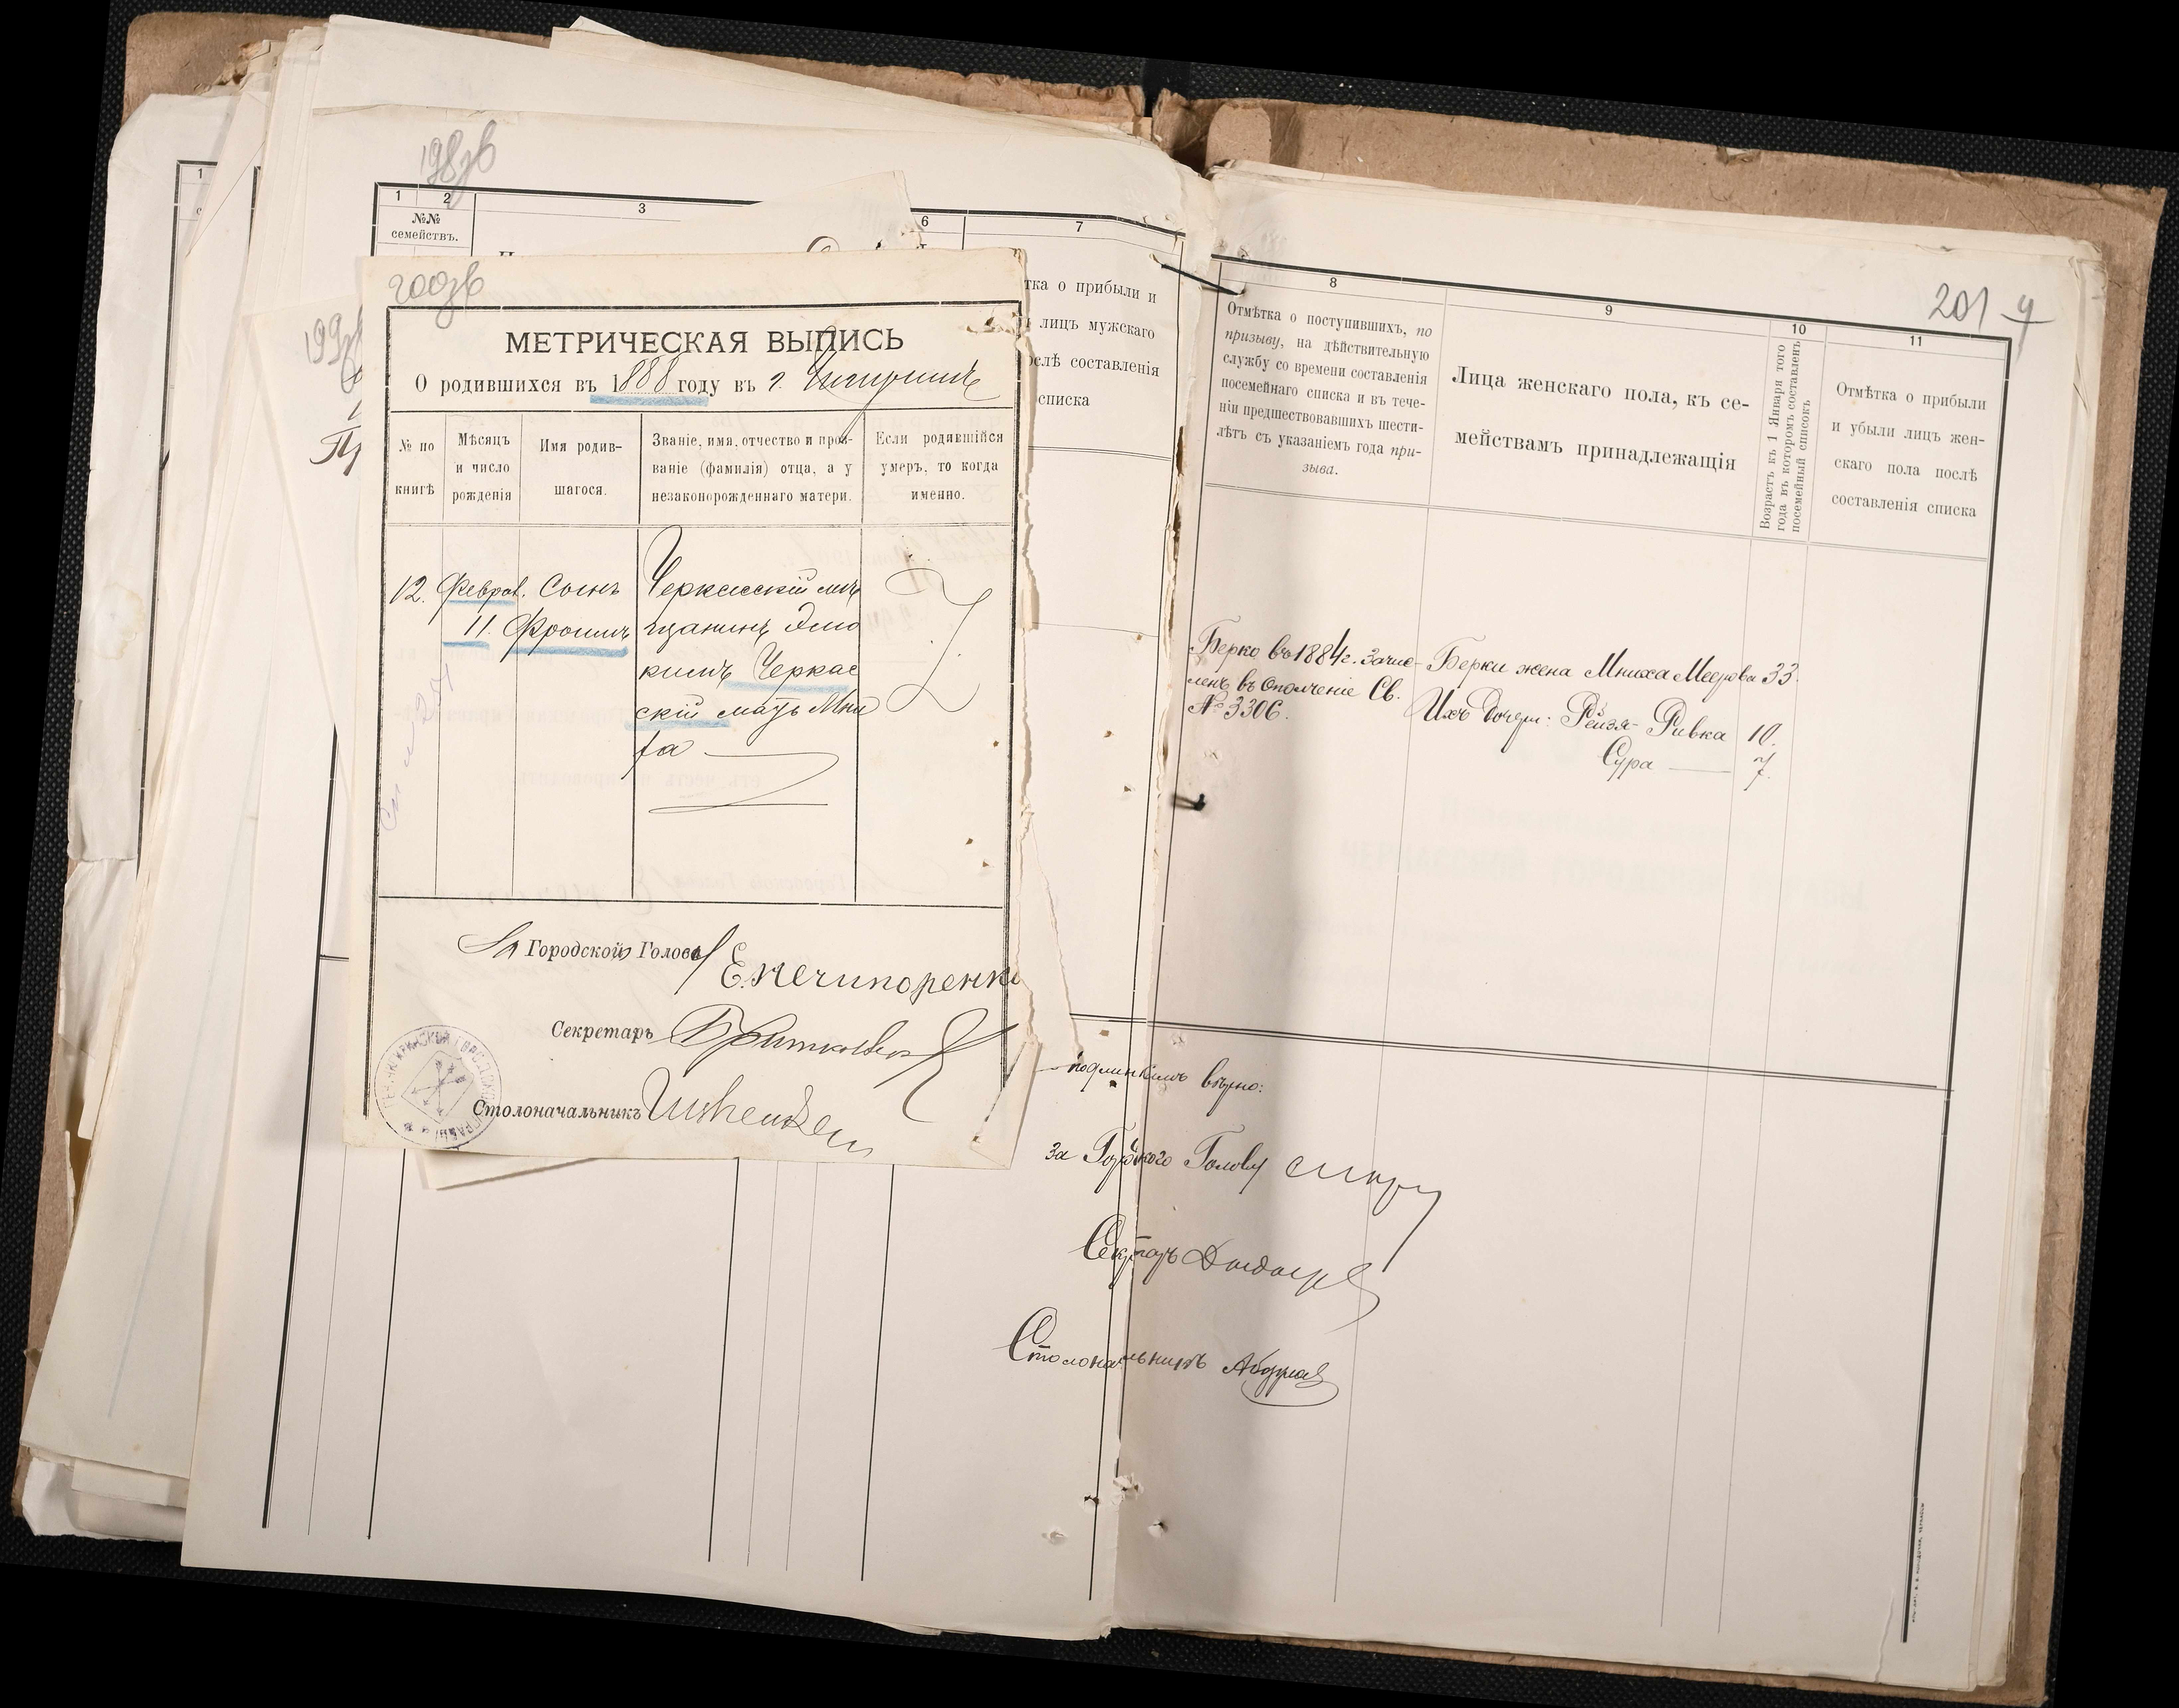 198зв
1 2 3 6 7
№№
семействъ.
тка о прибыли и
лицъ мужскаго
ослѣ составленія
списка
199
200зв
МЕТРИЧЕСКАЯ ВЫПИСЬ
О родившихся въ 1888 году въ г. Чигиринѣ
№ по книгѣ
Мѣсяцъ и число рожденія
Имя родив-
шагося.
Званіе, имя, отчество и проз-
ваніе (фамилія) отца, а у
незаконорожденнаго матери.
Если родившійся
умеръ, то когда
именно.
12. Феврал. Сынъ Черкасскій мѣ
11. Фроимъ щанинъ Элио
кимъ Черкас
скій мать Мни
ха
За Городской Голова Е. Нечипоренко
Секретарь
Столоначальникъ
201 4
8 9 10 11
Отмѣтка о поступившихъ, по
призыву, на дѣйствительную
службу со времени составленія
посемейнаго списка и въ тече-
ніи предшествовавшихъ шести-
лѣтъ съ указаніемъ года при-
зыва.
Лица женскаго пола, къ се-
мействамъ принадлежащія
Возрастъ къ 1 Января того
года въ которомъ составленъ
посемейный списокъ
Отмѣтка о прибыли
и убыли лицъ жен-
скаго пола послѣ
составленія списка
Берко въ 1884г. зачис-
ленъ въ ополченіе Св.
№ 3306.
Берки жена Мниха Меерова 33.
Ихъ Дочери: Рейзя-Ривка 10.
Сура 7.
подлиннымъ вѣрно:
за Город̃кого Голову
Секр̃тарь
Столоначальникъ